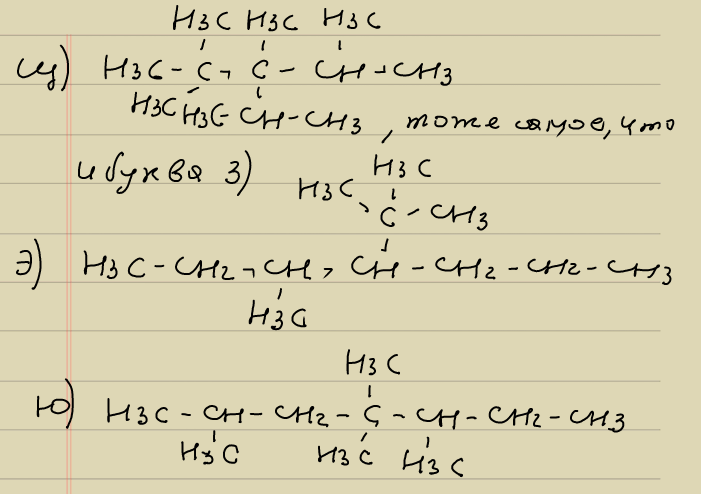 H3C H3C H3C
щ) H3C - C - C - CH - CH3
H3C H3C - CH - CH3 , тоже самое, что
и буква з) H3C H3C
C - CH3
э) H3C - CH2 - CH - CH - CH2 - CH2 - CH3
H3C
H3C
ю) H3C - CH - CH2 - C - CH - CH2 - CH3
H3C H3C H3C